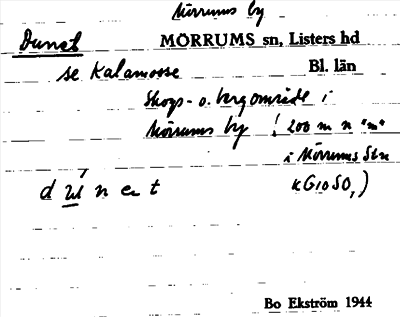 Mörrums by
Dunet MÖRRUMS sn, Listers hd
se Kalamosse Bl. län
Skogs- o. bergområde i
Mörrums by ! 200 m n "m"
i Mörrums Stn
d ú n e t KG10SO,)
Bo Ekström 1944